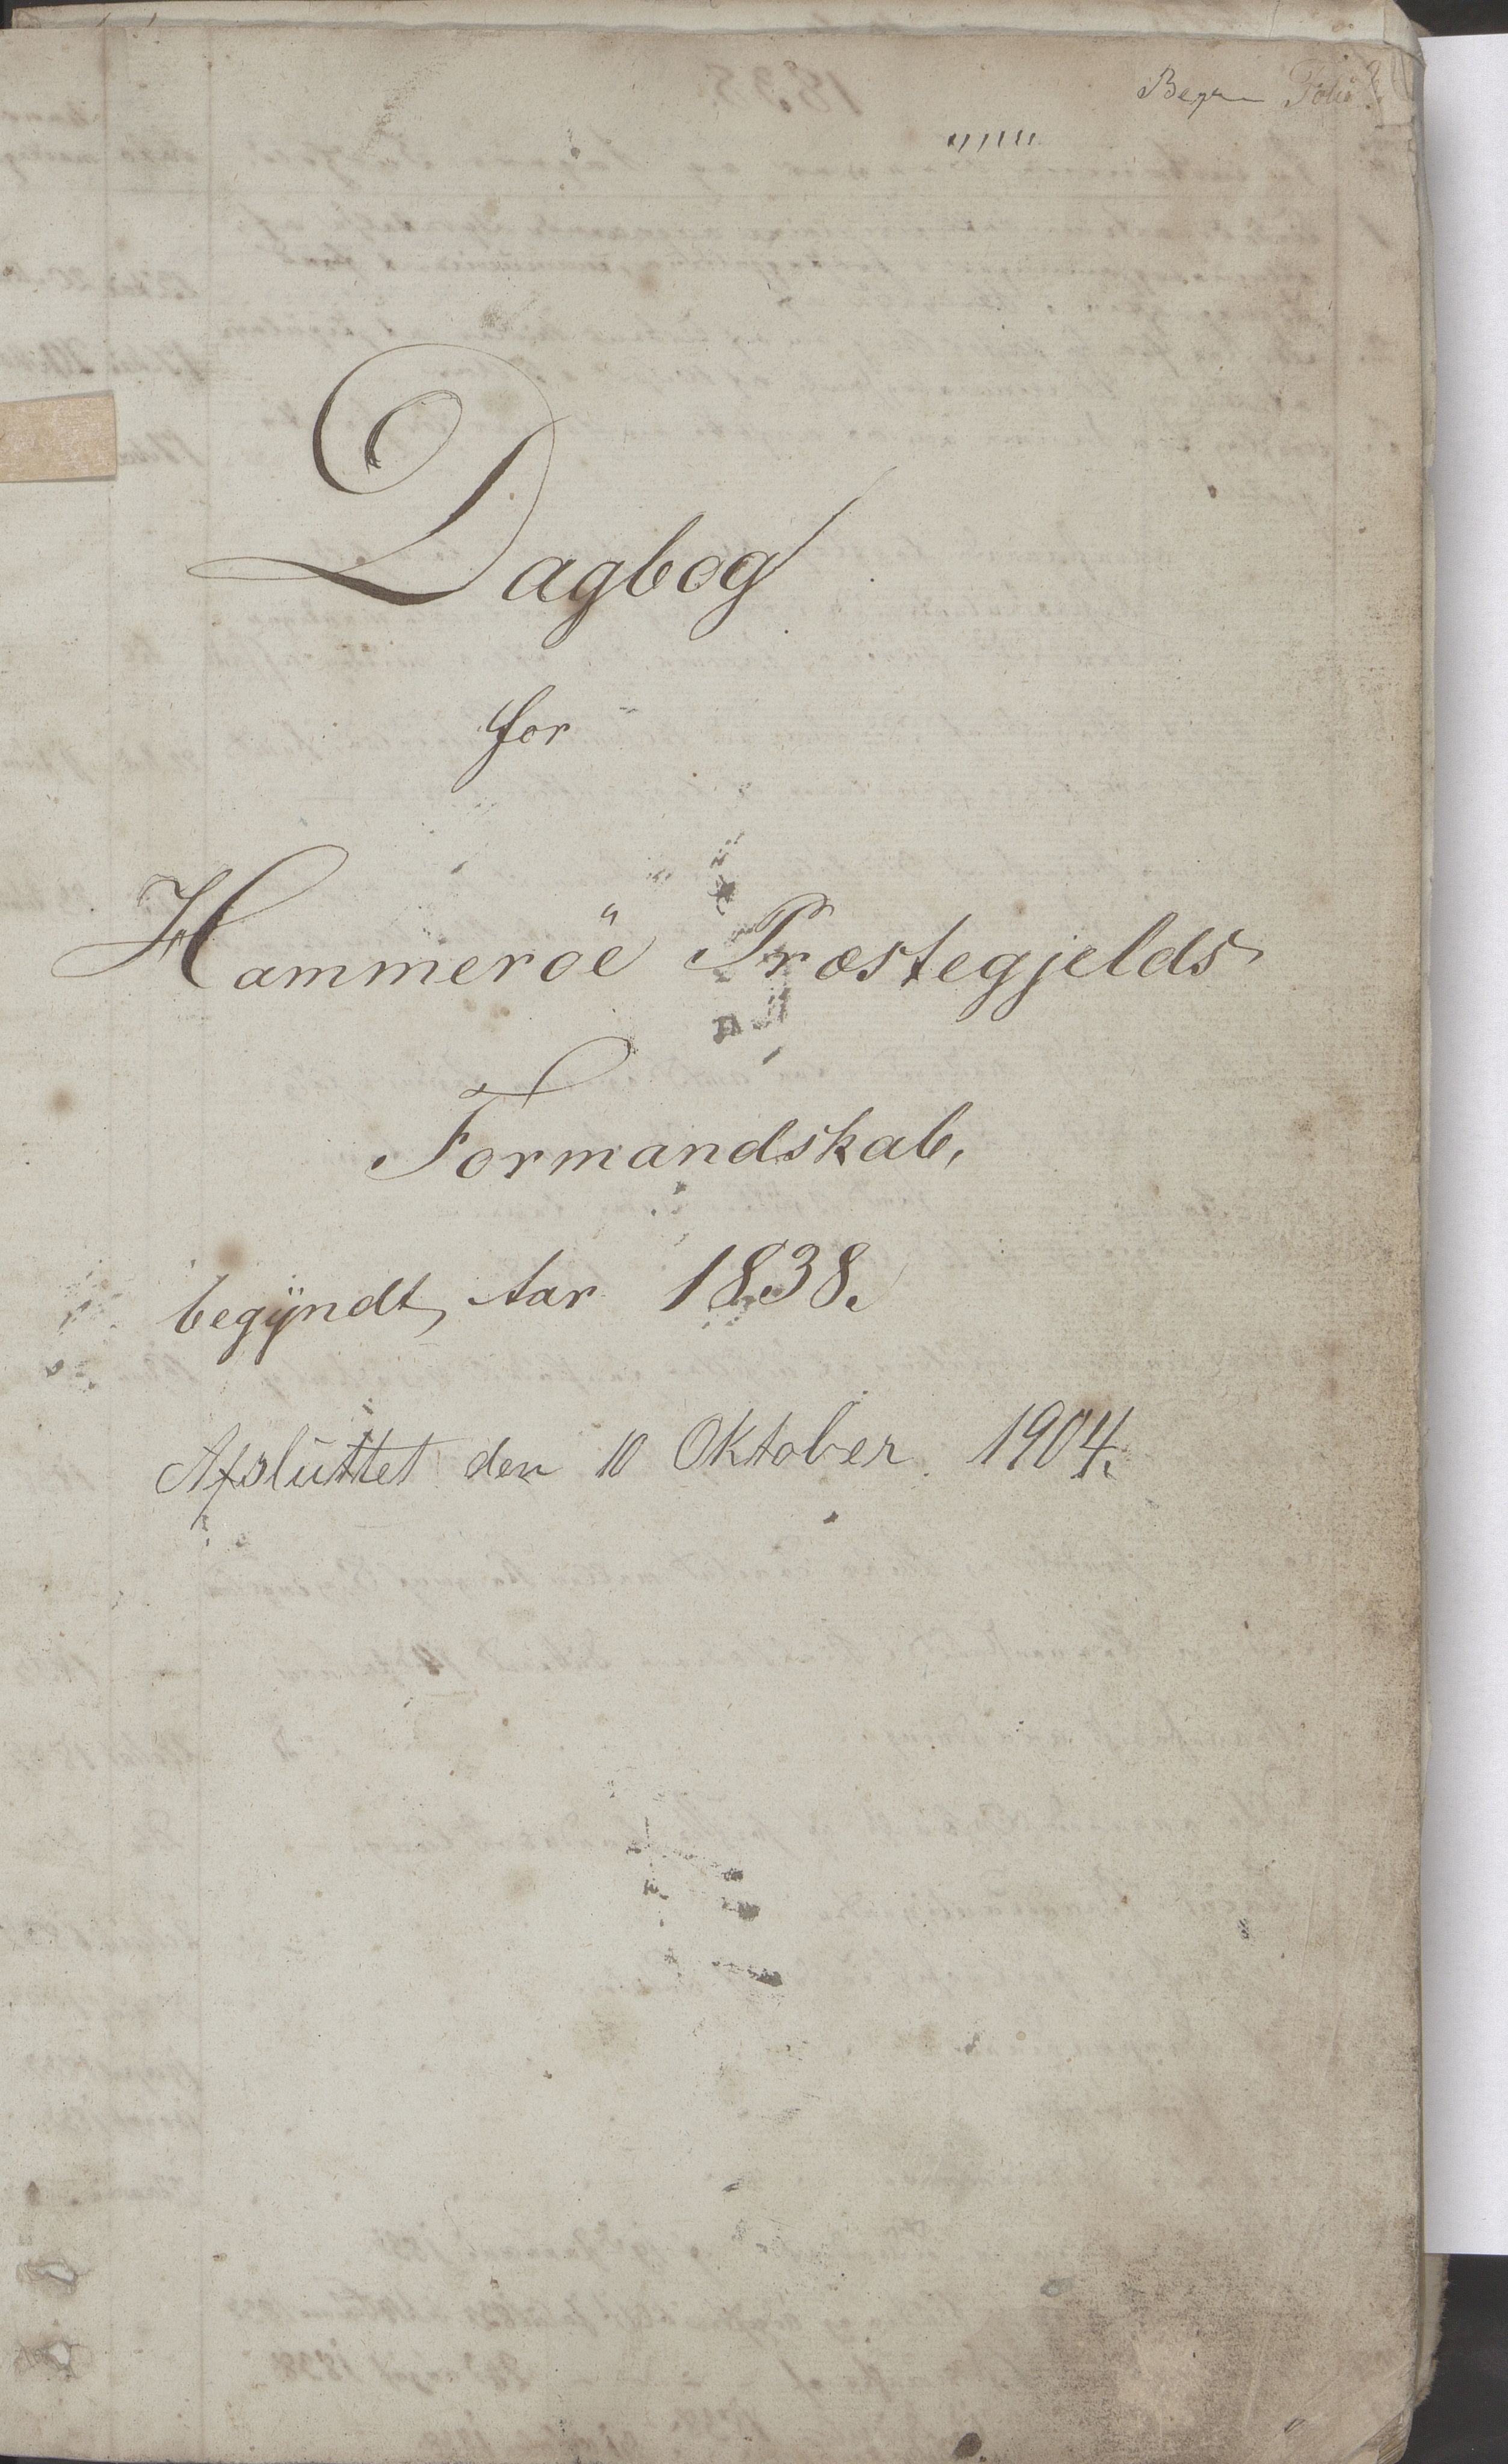 Folio
Dagbog
for
Hammeröe Præstegjelds
Formandskab,
begÿndt, Aar 1838.
Afsluttet den 10 Oktober 1904.